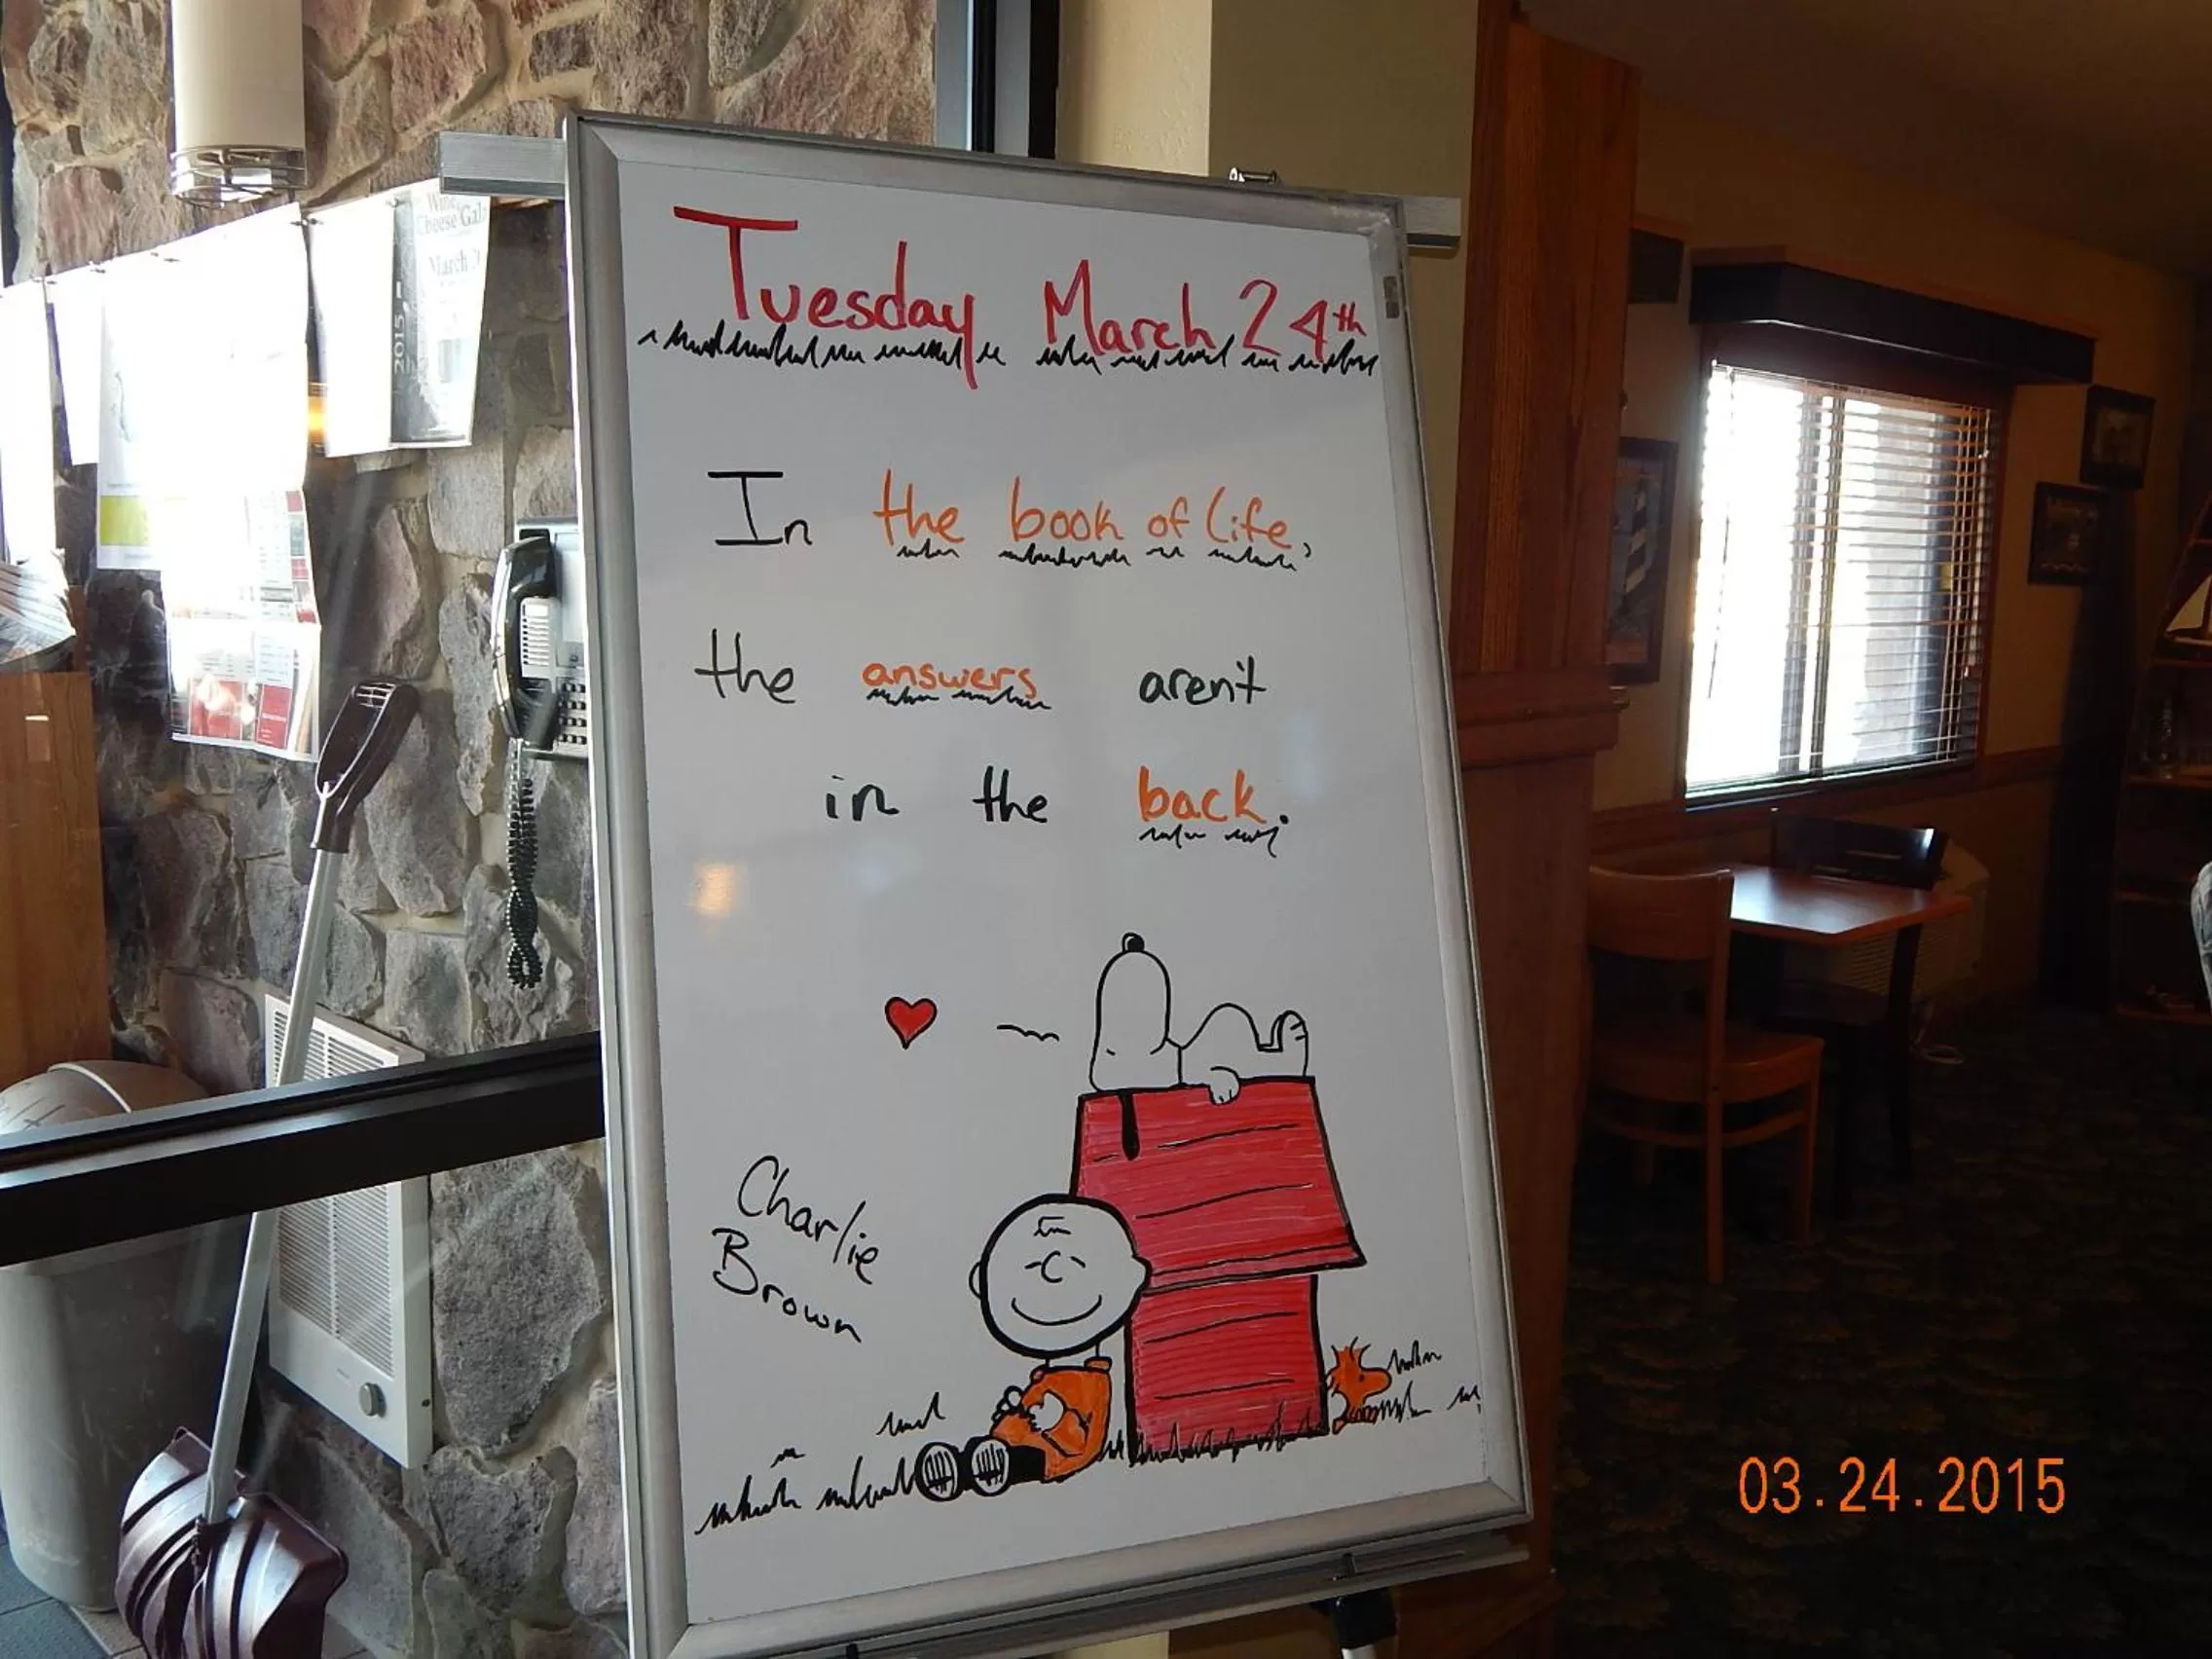 Wine
Cheese Gala
March
2015
Tuesday March 24th
In the book of life,
the answers aren't
in the back.
Charlie
Brown
03.24.2015